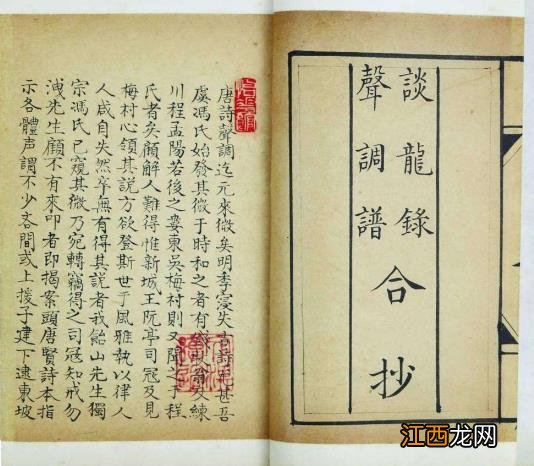 談龍錄
聲調譜
合抄
唐詩聲調迄元來微矣明季寖失古詩尤甚吾
虞馮氏始發其微于時和之者有錢牧翁及練
川程孟陽若後之婁東吳梅村則又聞之于程
氏者矣顧解人難得惟新城王阮亭司冠及見
梅村心領其説方欲登斯世于風雅執以律人
人咸自失然卒無有得其説者我飴山先生獨
宗馮氏已窺其微乃宛轉竊得之司冠知戒勿
洩先生顧不有來叩者即揭案頭唐賢詩本指
示各體声調不少吝間或上援子建下逮東坡
江西龙网